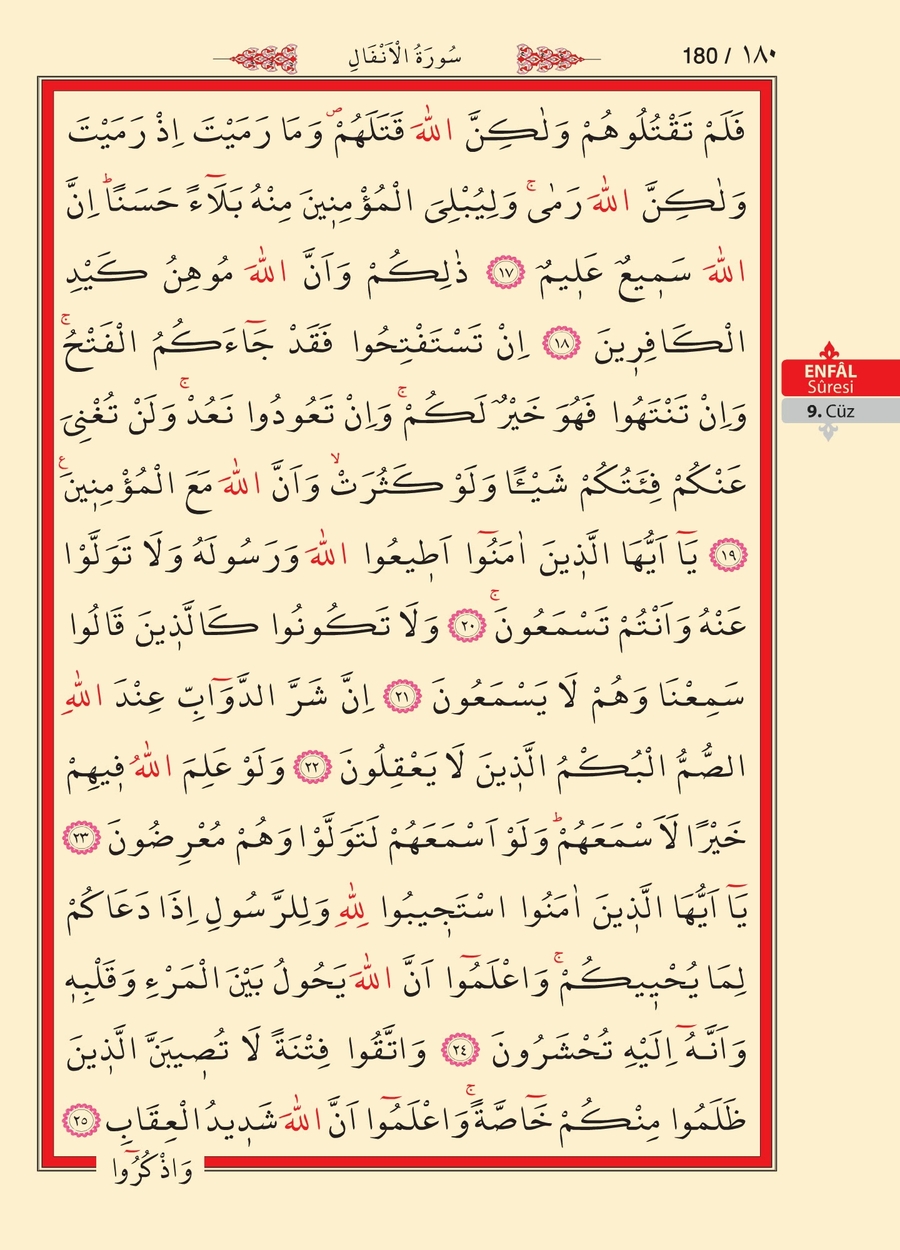 180 / ١٨٠
سُورَةُ الْاَنْفَالِ
فَلَمْ تَقْتُلُوهُمْ وَلٰكِنَّ اللّٰهَ قَتَلَهُمْۖ وَمَا رَمَيْتَ اِذْ رَمَيْتَ
وَلٰكِنَّ اللّٰهَ رَمٰىۚ وَلِيُبْلِيَ الْمُؤْمِن۪ينَ مِنْهُ بَلَٓاءً حَسَنًاۜ اِنَّ
اللّٰهَ سَم۪يعٌ عَل۪يمٌ ﴿١٧﴾ ذٰلِكُمْ وَاَنَّ اللّٰهَ مُوهِنُ كَيْدِ
الْكَافِر۪ينَ ﴿١٨﴾ اِنْ تَسْتَفْتِحُوا فَقَدْ جَٓاءَكُمُ الْفَتْحُۚ
وَاِنْ تَنْتَهُوا فَهُوَ خَيْرٌ لَكُمْۚ وَاِنْ تَعُودُوا نَعُدْۚ وَلَنْ تُغْنِيَ
عَنْكُمْ فِئَتُكُمْ شَيْـًٔا وَلَوْ كَثُرَتْۙ وَاَنَّ اللّٰهَ مَعَ الْمُؤْمِن۪ينَ۟
﴿١٩﴾ يَٓا اَيُّهَا الَّذ۪ينَ اٰمَنُٓوا اَط۪يعُوا اللّٰهَ وَرَسُولَهُ وَلَا تَوَلَّوْا
عَنْهُ وَاَنْتُمْ تَسْمَعُونَۚ ﴿٢٠﴾ وَلَا تَكُونُوا كَالَّذ۪ينَ قَالُوا
سَمِعْنَا وَهُمْ لَا يَسْمَعُونَ ﴿٢١﴾ اِنَّ شَرَّ الدَّوَٓابِّ عِنْدَ اللّٰهِ
الصُّمُّ الْبُكْمُ الَّذ۪ينَ لَا يَعْقِلُونَ ﴿٢٢﴾ وَلَوْ عَلِمَ اللّٰهُ ف۪يهِمْ
خَيْرًا لَاَسْمَعَهُمْۜ وَلَوْ اَسْمَعَهُمْ لَتَوَلَّوْا وَهُمْ مُعْرِضُونَ ﴿٢٣﴾
يَٓا اَيُّهَا الَّذ۪ينَ اٰمَنُوا اسْتَج۪يبُوا لِلّٰهِ وَلِلرَّسُولِ اِذَا دَعَاكُمْ
لِمَا يُحْي۪يكُمْۚ وَاعْلَمُٓوا اَنَّ اللّٰهَ يَحُولُ بَيْنَ الْمَرْءِ وَقَلْبِه۪
وَاَنَّهُٓ اِلَيْهِ تُحْشَرُونَ ﴿٢٤﴾ وَاتَّقُوا فِتْنَةً لَا تُص۪يبَنَّ الَّذ۪ينَ
ظَلَمُوا مِنْكُمْ خَٓاصَّةًۚ وَاعْلَمُٓوا اَنَّ اللّٰهَ شَد۪يدُ الْعِقَابِ ﴿٢٥﴾
وَاذْكُرُٓوا
ENFÂL
Sûresi
9. Cüz